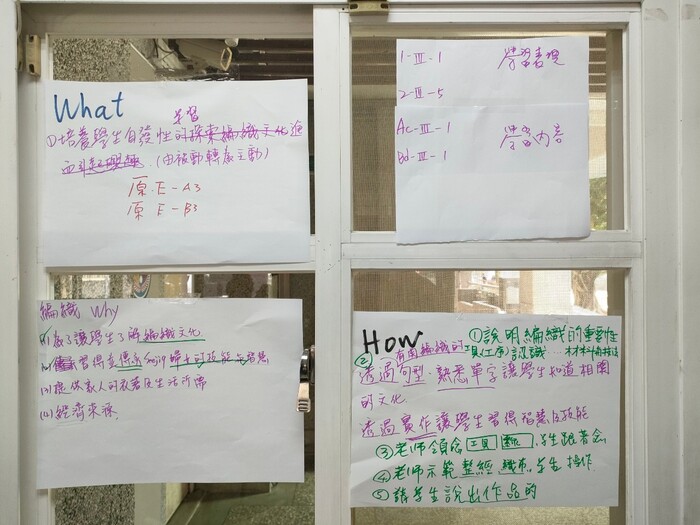 What
學習
①培養學生自發性的探索編織文化進
而引起興趣.(由被動轉為主動)
原.E-A3
原 E-B3
1-Ⅲ-1 學習表現
2-Ⅲ-5
Ac-Ⅲ-1 學習內容
Bd-Ⅲ-1
編織 Why
讓學生了解編織文化
習得 婦女的技能智慧
(3)提供家人的衣著及生活所需
(4)經濟來源
How ①說明編織的重要性
② 有關編織的 具(工序)認識…材料
透過句型.熟悉單字讓學生知道相關
的文化
透過實作讓學生習得智慧及技能
③老師領念 工具 .學生跟著念
④老師示範 整經 織布.學生操作
⑤請學生說出作品的